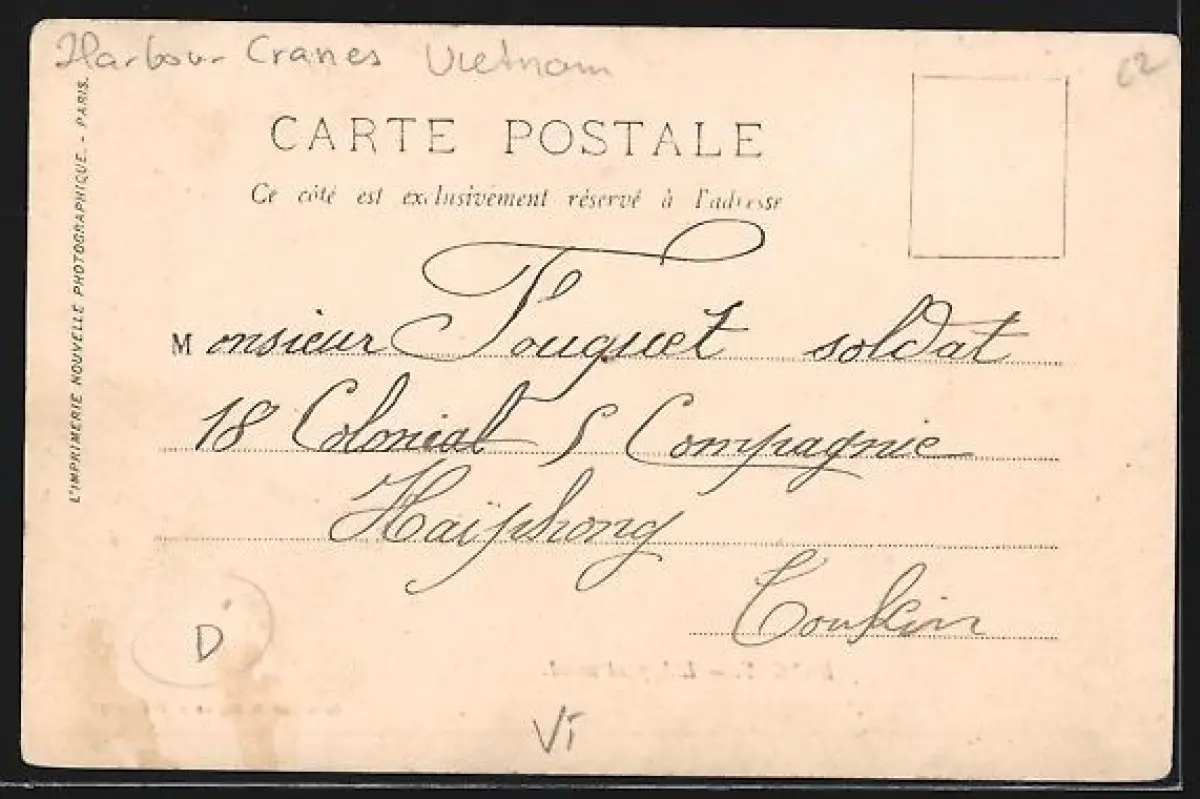 Harbour Cranes Vietnam
62
CARTE POSTALE
Ce côté est exclusivement réservé à l'adresse
L'IMPRIMERIE NOUVELLE PHOTOGRAPHIQUE. - PARIS.
Monsieur Fouquet soldat
18 Colonial 5 Compagnie
Haïphong
Tonkin
D
Vi